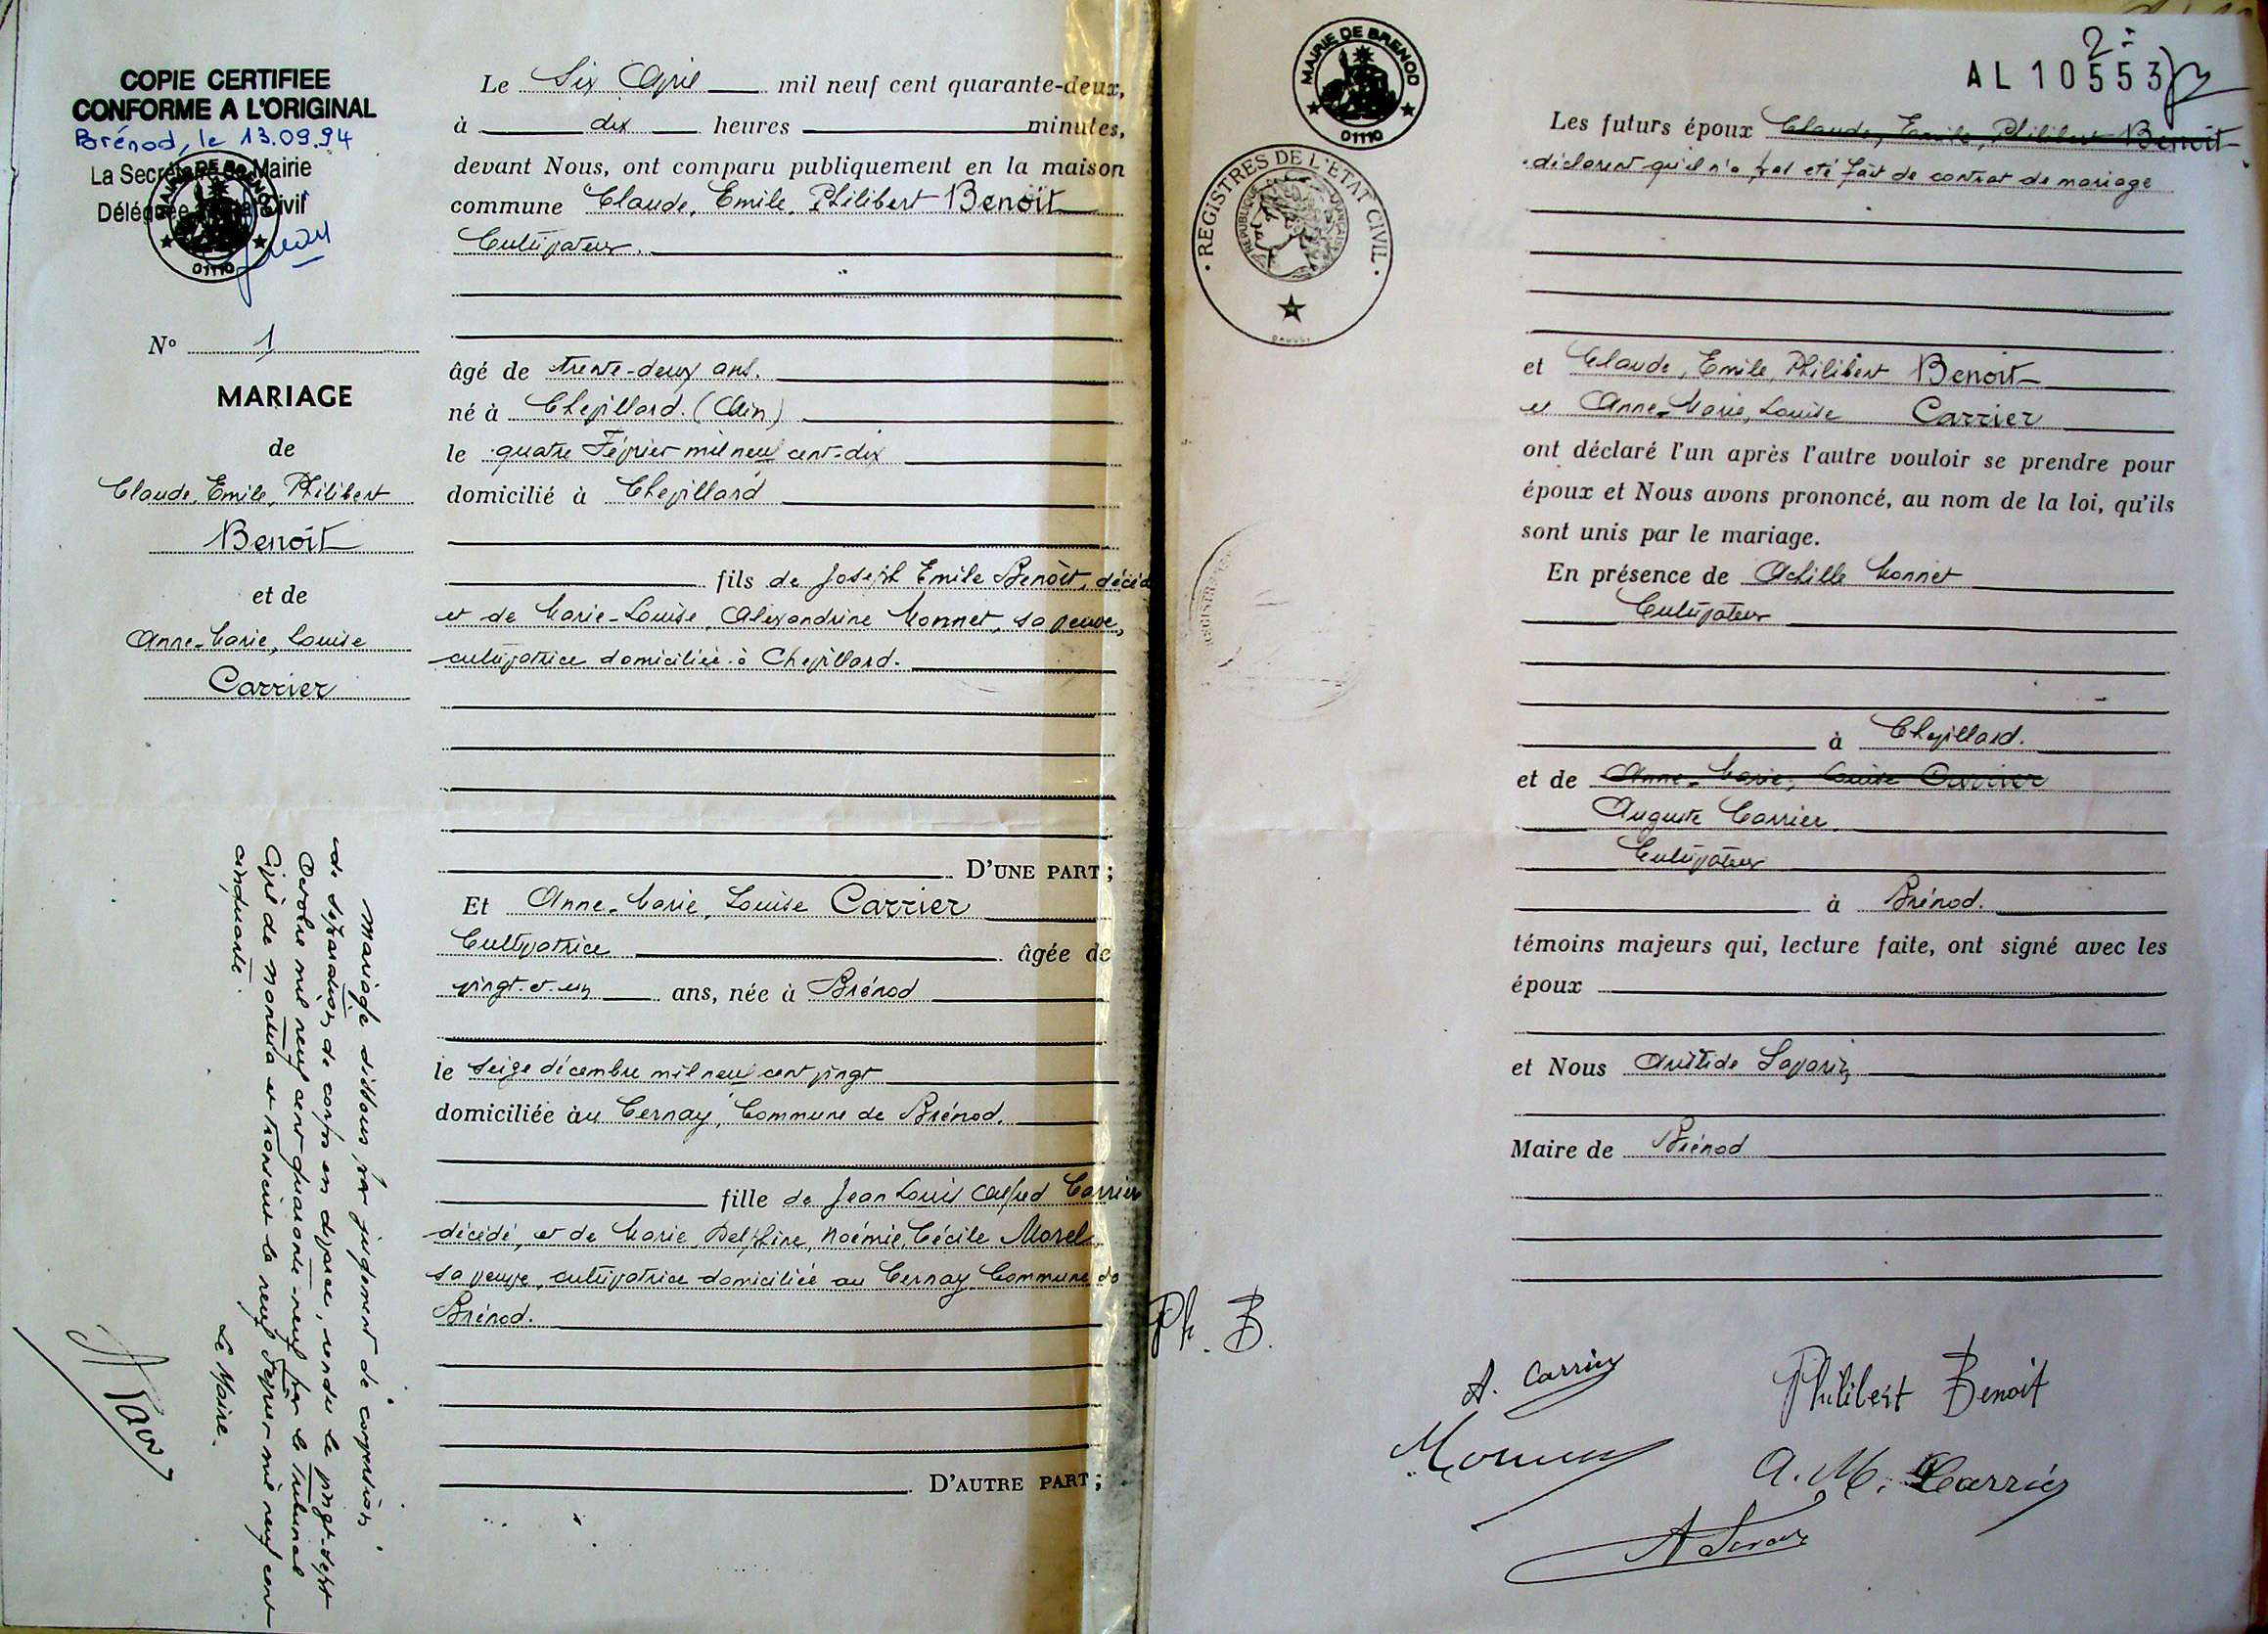 COPIE CERTIFIEE
CONFORME A L'ORIGINAL
Brénod, le 13.09.94
La Secrétaire de Mairie
Déléguée Civil
01110
N° 1
MARIAGE
de
Claude, Emile, Philibert
Benoît
et de
Anne-Marie, Louise
Carrier
Mariage dissous par jugement de conversion
de séparation de corps en divorce, rendu le vingt-sept
Octobre mil neuf cent quarante-neuf par le Tribunal
Civil de Nantua et transcrit le neuf Février mil neuf cent
cinquante.
Le Maire.
Le Six Avril mil neuf cent quarante-deux,
à dix heures minutes,
devant Nous, ont comparu publiquement en la maison
commune Claude, Emile, Philibert Benoît
Cultivateur.
âgé de trente-deux ans.
né à Chevillard. (Ain)
le quatre Février mil neuf cent-dix
domicilié à Chevillard
fils de Joseph Emile Benoît, décéd
et de Marie-Louise, Alexandrine Monnet, sa veuve,
cultivatrice domiciliée à Chevillard.
D'UNE PART ;
Et Anne-Marie, Louise Carrier
Cultivatrice âgée de
vingt-et-un ans, née à Brénod
le seize décembre mil neuf cent vingt
domiciliée àu Cernay, Commune de Brénod.
fille de Jean Louis Alfred Carrier
décédé, et de Marie, Delphine, Noémie, Cécile Morel
sa veuve, cultivatrice domiciliée au Cernay Commune de
Brénod.
D'AUTRE PART ;
MAIRIE DE BRENOD
01110
REGISTRES DE L'ETAT CIVIL
REPUBLIQUE FRANÇAISE
2
AL 10553
Les futurs époux Claude, Emile, Philibert Benoît
déclarent qu'il n'a pas été fait de contrat de mariage
et Claude, Emile, Philibert Benoit
et Anne-Marie, Louise Carrier
ont déclaré l'un après l'autre vouloir se prendre pour
époux et Nous avons prononcé, au nom de la loi, qu'ils
sont unis par le mariage.
En présence de Achille Monnet
Cultivateur
à Chevillard.
et de Anne-Marie, Louise Carrier
Auguste Carrier.
Cultivateur
à Brénod.
témoins majeurs qui, lecture faite, ont signé avec les
époux
et Nous Aristide Savarin
Maire de Brénod
Ph. B.
A. Carrier
Philibert Benoit
A. M. Carrier